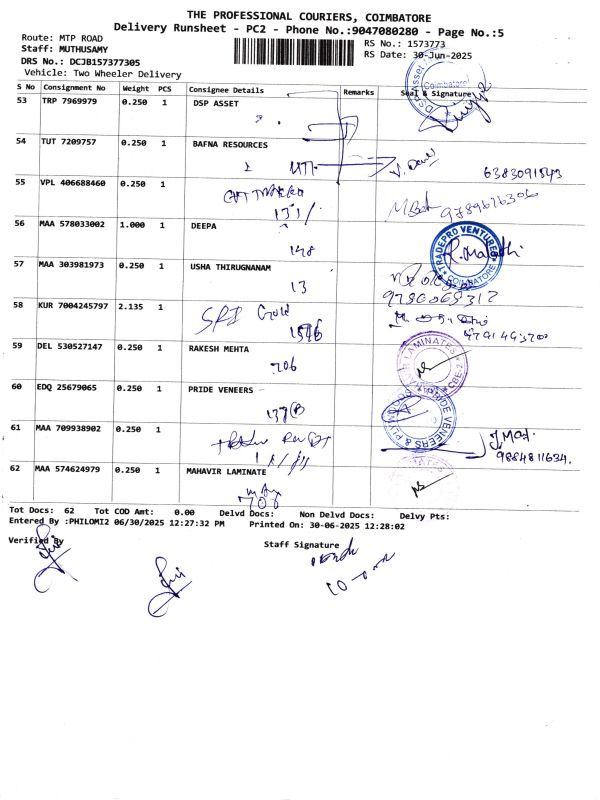 THE PROFESSIONAL COURIERS, COIMBATORE
Delivery Runsheet - PC2 - Phone No.:9047080280 - Page No.:5
Route: MTP ROAD
RS No.: 1573773
Staff: MUTHUSAMY
RS Date: 30-Jun-2025
DRS No.: DCJB157377305
Vehicle: Two Wheeler Delivery
S No Consignment No Weight PCS Consignee Details Remarks Seal & Signature
53 TRP 7969979 0.250 1 DSP ASSET
DSP Asset Coimbatore
54 TUT 7209757 0.250 1 BAFNA RESOURCES
6383091543
55 VPL 406688460 0.250 1
131/
9789676306
56 MAA 578033002 1.000 1 DEEPA
148
TRADEPRO VENTURES COIMBATORE
57 MAA 303981973 0.250 1 USHA THIRUGNANAM
13
58 KUR 7004245797 2.135 1
SRI Gold
59 DEL 530527147 0.250 1 RAKESH MEHTA
206
LAMINATES CBE-2
60 EDQ 25679065 0.250 1 PRIDE VENEERS
PRIDE VENEERS & PLYWOODS
61 MAA 709938902 0.250 1
9884811634.
62 MAA 574624979 0.250 1 MAHAVIR LAMINATE
Tot Docs: 62 Tot COD Amt: 0.00 Delvd Docs: Non Delvd Docs: Delvy Pts:
Entered By :PHILOMI2 06/30/2025 12:27:32 PM Printed On: 30-06-2025 12:28:02
Verified By
Staff Signature